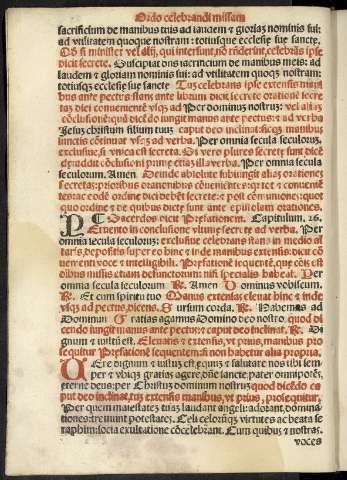 Ordo celebrandi missam
sacrificium de manibus tuis ad laudem et gloriam nominis sui:
ad vtilitatem quoque nostram: totiusque ecclesie sue sancte.
si minister vel alij, qui intersunt, ipse
dicit secrete. Suscipiat dns sacrificium de manibus meis: ad
laudem et gloriam nominis sui: ad vtilitatem quoqz nostram:
totiusqz ecclesie sue sancte Tūc celebrans ipse extensis mani
bus ante pectus stans ante librum dicit secrete orationē secre
tas diei conuenientē vsqz ad Per dominum nostrum: vel aliam
cōclusionē: quā dicēdo iungit manus ante pectus: et ad verba
Jesum christum filium tuum caput deo inclinat: sicqz manibus
iunctis cōtinuat vsqz ad verba. Per omnia secula seculorum.
exclusiue, si vnica est secreta. Si vero plures secrete sunt dicē
de, addit cōclusioni prime etiam illa verba. Per omnia secula
seculorum. Amen Deinde absolute subiungit alias orationes
secretas: prioribus orationibus cōueniente: que licet et conueniē
ter eodē ordine dici debēt secrete: et post communionē: quo
quo ordine et de quibus dicte sunt ante epistolam orationes.
DE Sacerdos dicit Prefationem. Capitulum. 26.
Peruento in conclusione vltime secrete ad verba. Per
omnia secula seculorum: exclusiue celebrans stans in medio al
taris, depositis super eo hinc et inde manibus extensis: dicit cō
uenienti voce et intelligibili. Prefationē sequentē, que est
missis etiam defunctorum: nisi specialis habeat. Per
omnia secula seculorum R. Amen Dominus vobiscum.
R. Et cum spiritu tuo Manus extensas eleuat hinc et inde
vsqz ad pectus, dicens. Sursum corda. R. Habemus ad
Dominum Gratias agamus Domino deo nostro. quod di
cendo iungit manus ante pectus: et caput deo inclinat. R. Di
gnum et iustū est. Eleuatis et extensis, vt prius, manibus pro
sequitur Prefationē sequentem: si non habetur alia propria.
VEre dignum et iustū est, equū et salutare nos tibi sem
per et vbique gratias agere, dñe sancte, pater omnipotēs,
eterne deus: per Christum dominum nostrum quod dicēdo ca
put deo inclinat, tūc extensis manibus, vt prius, prosequitur,
Per quem maiestatem tuam laudant angeli: adorant, dominā
tiones: tremunt potestates. Celi celorumqz virtutes ac beata se
raphim: socia exultatione cōcelebrant. Cum quibus et nostras
voces